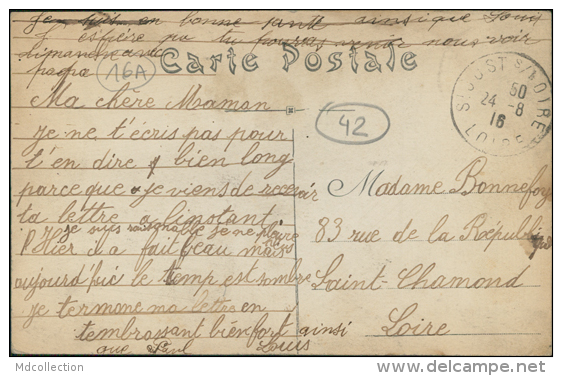 Je suis en bonne santé ainsi que Louis
J espière pa tu pourras venir nous voir
dimanche avec
papa
16A
Carte Postale
ST JUST S/LOIRE
24 -8
16
LOIRE
42
Ma chère Maman
Je ne t'écris pas pour
t'en dire bien long
parce que je viens de recevoir
ta lettre a l'instant
je suis je ne pleure
pas
Hier il a fait beau mais
aujourd'hui le temp est sombre
je termone ma lettre en
tembrassant bien fort ainsi
que Paul Louis
Madame Bonnefoy
83 rue de la République
Saint-Chamond
Loire
Mdcollection
delcampe.net